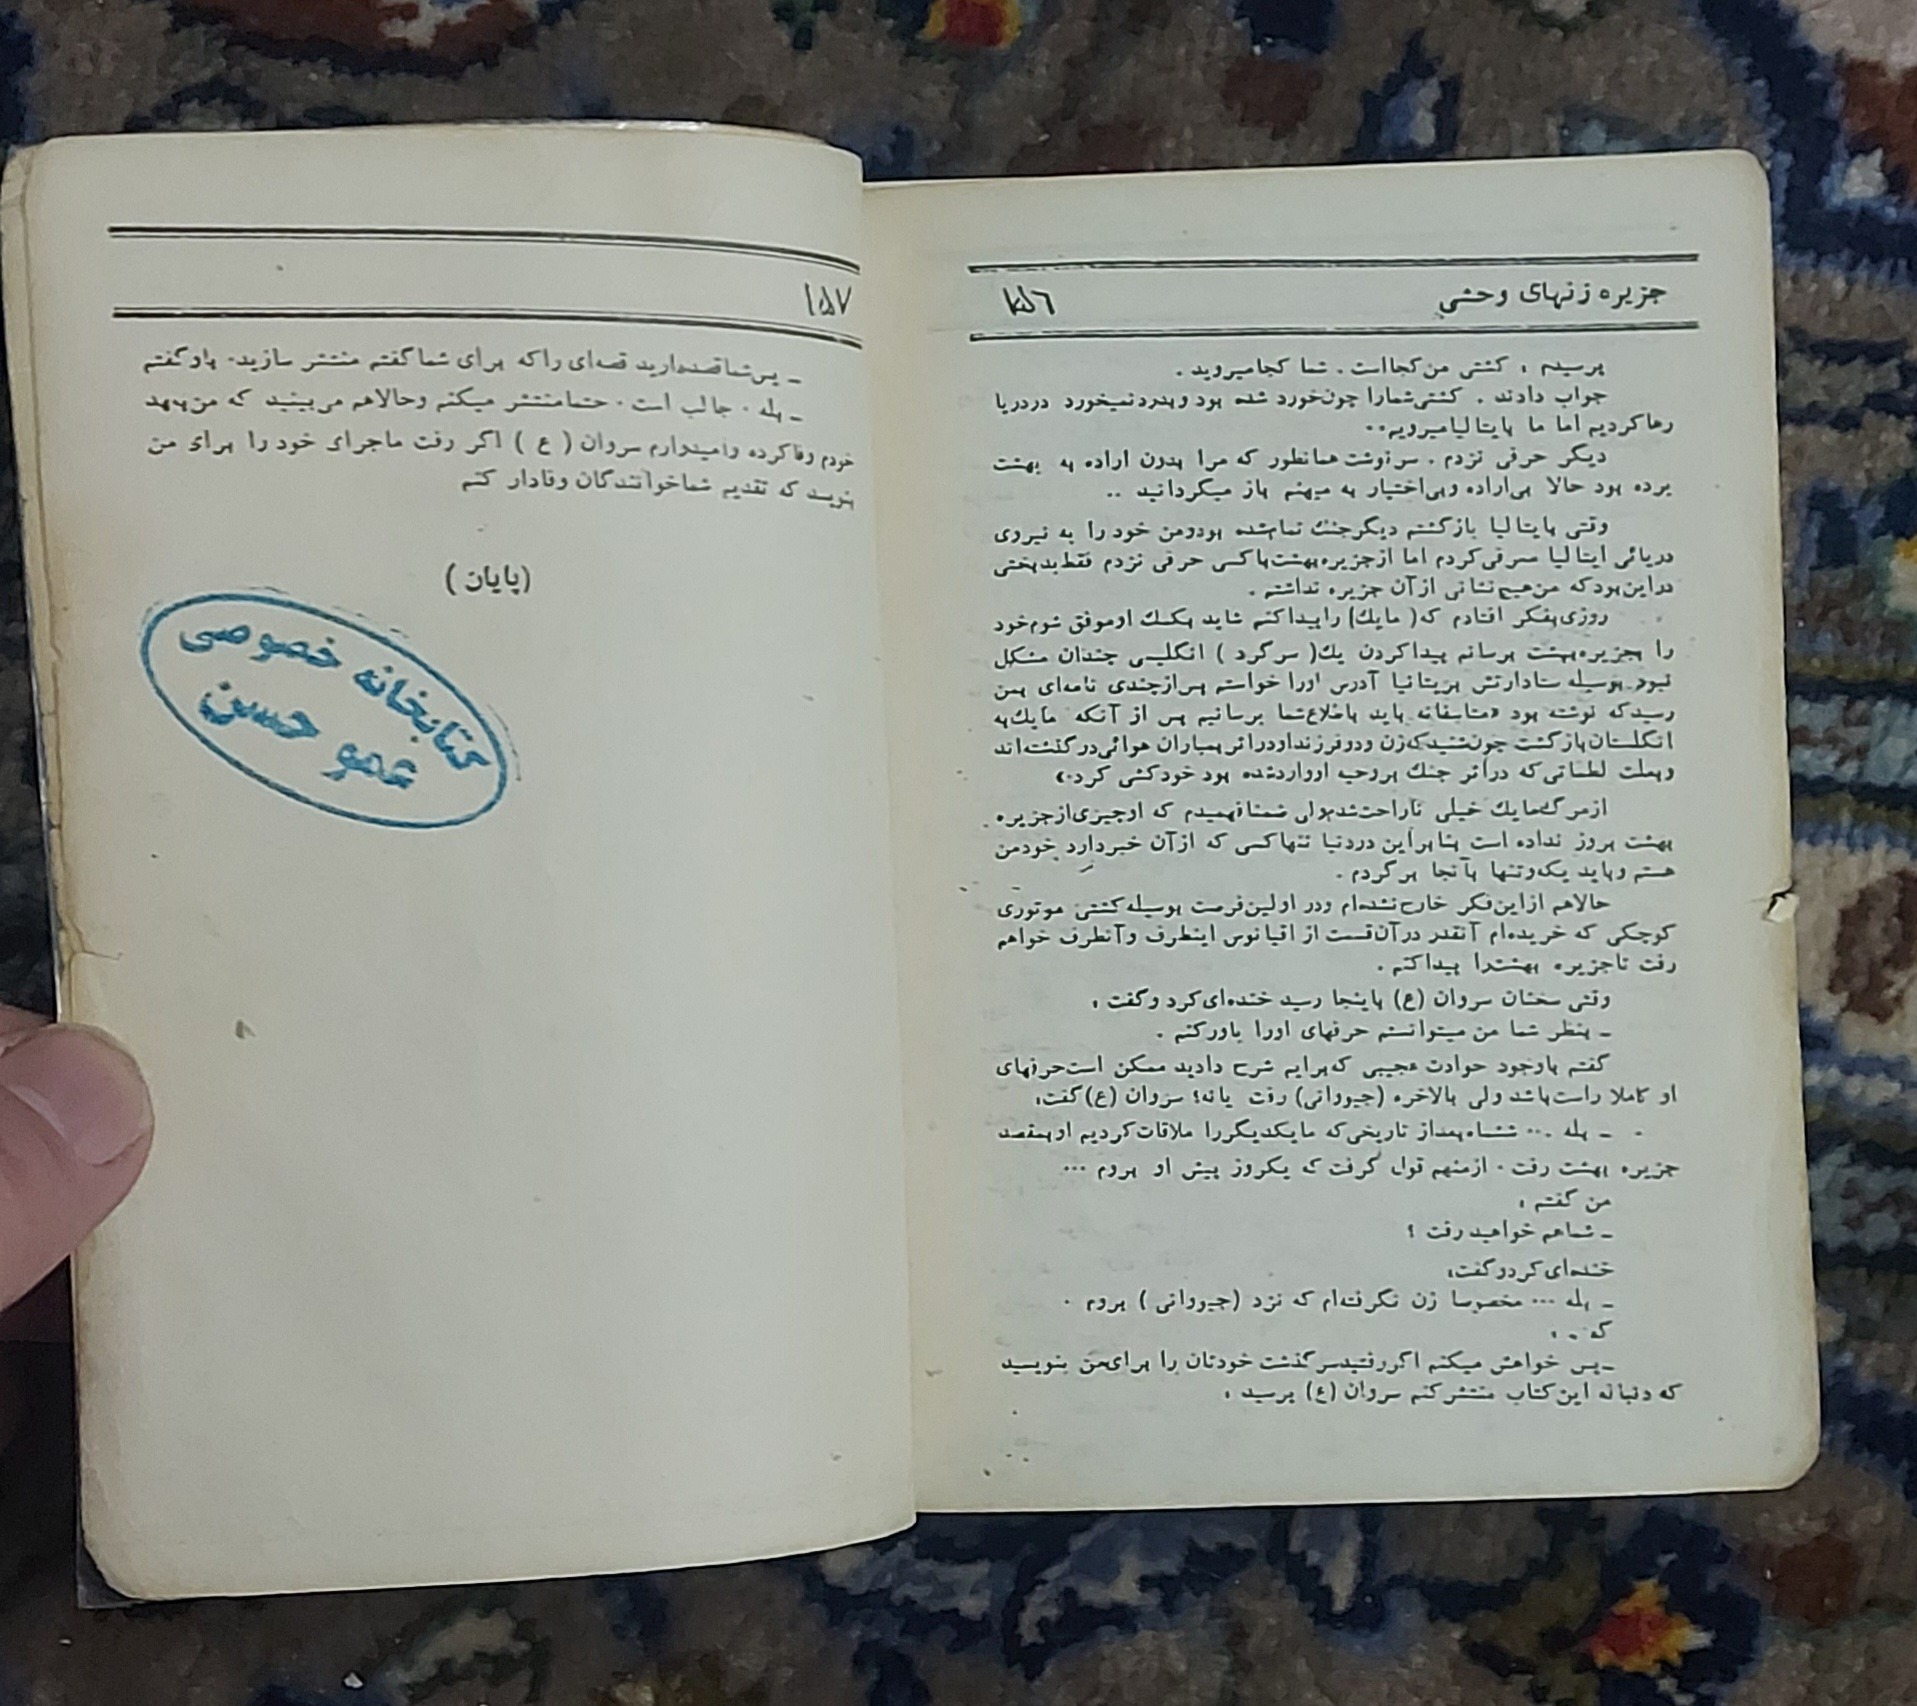 جزیره زنهای وحشی
۱۵٦
پرسیدم : کشتی من کجااست . شما کجامیروید .
جواب دادند . کشتی‌شمارا چون‌خورد شده بود وبدرد‌نمیخورد دردریا
رهاکردیم اما ما بایتالیامیرویم..
دیگر حرفی نزدم . سرنوشت همانطور که مرا بدون اراده به بهشت
برده بود حالا بی‌اراده وبی‌اختیار به میهنم باز میگردانید ..
وقتی بایتالیا بازگشتم دیگرجنك تمام‌شده بودومن خود را به نیروی
دریائی ایتالیا معرفی‌کردم اما ازجزیره‌بهشت‌باکسی حرفی نزدم فقط‌بدبختی
دراین‌بودکه من‌هیچ‌نشانی ازآن جزیره نداشتم .
روزی‌بفکر افتادم که( مایك) راپیداکنم شاید بکمك اوموفق شوم‌خود
را بجزیره‌بهشت برسانم پیداکردن یك( سرگرد ) انگلیسی چندان مشکل
نبود بوسیله ستادارتش بریتانیا آدرس اورا خواستم پس‌ازچندی نامه‌ای بمن
رسیدکه نوشته بود «متاسفانه باید باطلاع‌شما برسانیم پس از آنکه مایك‌به
انگلستان بازگشت چون‌شنیدکه‌زن ودوفرزنداودراثر بمباران هوائی‌درگذشته‌اند
وبعلت لطماتی‌که دراثر جنك بروحیه اوواردشده بود خودکشی کرد.»
ازمرگ‌مایك خیلی ناراحت‌شدم‌ولی ضمنافهمیدم که اوچیزی‌ازجزیره
بهشت بروز نداده است بنابراین دردنیا تنهاکسی که ازآن خبردارد خودمن
هستم وباید یکه‌وتنها بآنجا برگردم .
حالاهم ازاین‌فکر خارج‌نشده‌ام ودر اولین‌فرصت بوسیله‌کشتی موتوری
کوچکی که خریده‌ام آنقدر درآن‌قسمت از اقیانوس اینطرف وآنطرف خواهم
رفت تاجزیره بهشت‌را پیداکنم .
وقتی سخنان سروان (ع) باینجا رسید خنده‌ای‌کرد وگفت :
ـ بنظر شما من میتوانستم حرفهای اورا باورکنم .
گفتم باوجود حوادث عجیبی که‌برایم شرح دادید ممکن است‌حرفهای
او کاملا راست‌باشد ولی بالاخره (جیووانی) رفت یانه؟ سروان (ع)گفت:
ـ بله ... ششماه‌بعداز تاریخی‌که مایکدیگررا ملاقات‌کردیم اوبمقصد
جزیره بهشت رفت . ازمنهم قول گرفت که یکروز پیش او بروم ...
من گفتم :
ـ شماهم خواهید رفت ؟
خنده‌ای‌کردوگفت:
ـ بله ... مخصوصا زن نگرفته‌ام که نزد (جیووانی ) بروم .
ـ‌پس خواهش میکنم اگررفتیدسرگذشت خودتان را برای‌من بنویسید
که دنباله این‌کتاب منتشرکنم سروان (ع) پرسید :
۱۵۷
ـ پس‌شماقصددارید قصه‌ای راکه برای شماگفتم منتشر سازید. باوگفتم
ـ بله . جالب است . حتمامنتشر میکنم وحالاهم می‌بینید که من‌بعهد
خودم وفاکرده وامیدوارم سروان ( ع ) اگر رفت ماجرای خود را برای من
بنویسد که تقدیم شماخوانندگان وفادار کنم
(پایان )
کتابخانه خصوصی
عمو حسن